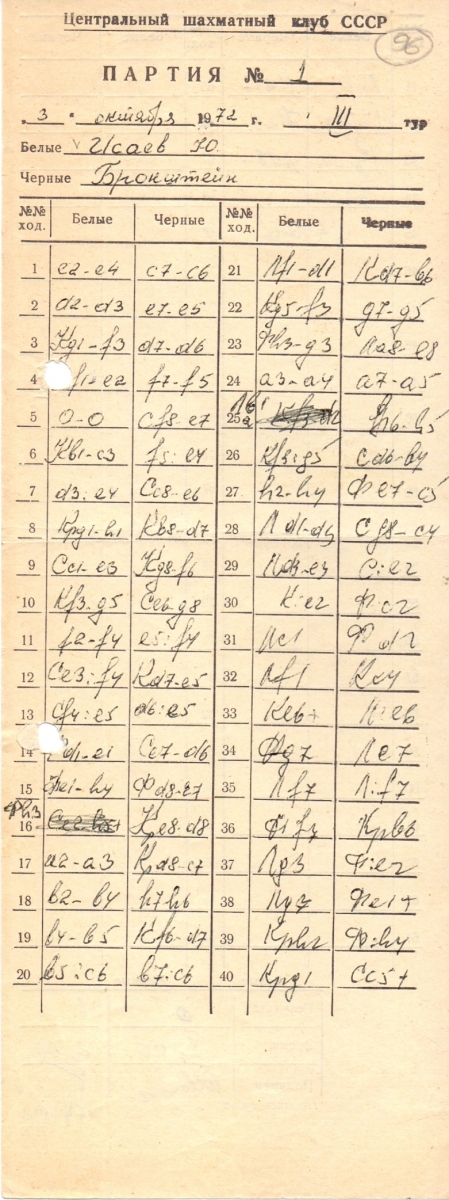 Центральный шахматный клуб СССР
96
ПАРТИЯ № 1
„3“ октября 1972 г. III тур
Белые Исаев Ю
Черные Бронштейн
№№ ход. Белые Черные №№ ход. Белые Черные
1 e2-e4 c7-c6 21 Лf1-d1 Кd7-b6
2 d2-d3 e7-e5 22 Кg5-f3 g7-g5
3 Кg1-f3 d7-d6 23 Фh3-g3 Ла8-e8
4 f1-e2 f7-f5 24 a3-a4 a7-a5
5 0-0 Сf8-e7 25 h6-h5
6 Кb1-c3 f5:e4 26 Кf3:g5 Сd6-b4
7 d3:e4 Сc8-e6 27 h2-h4 Фe7-c5
8 Крg1-h1 Кb8-d7 28 Лd1-d3 Сg8-c4
9 Сc1-e3 Кg8-f6 29 Лd3-e3 С:e2
10 Кf3-g5 Сe6-g8 30 К:e2 Ф:c2
11 f2-f4 e5:f4 31 Лc1 Фd2
12 Сe3:f4 Кd7-e5 32 Лf1 Кc4
13 Сf4:e5 d6:e5 33 Кe6+ Л:e6
14 d1-e1 Сe7-d6 34 Фg7 Лe7
15 Фe1-h4 Фd8-e7 35 Лf7 Л:f7
16 Фh3 Крe8-d8 36 Ф:f7 Крb6
17 a2-a3 Крd8-c7 37 Лg3 Ф:e2
18 b2-b4 h7h6 38 Лg7 Фe1+
19 b4-b5 Кf6-d7 39 Крh2 Ф:h4
20 b5:c6 b7:c6 40 Крg1 Сc5+